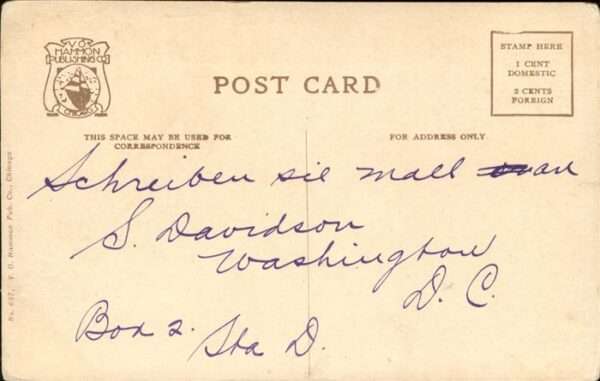 V.O.
HAMMON
PUBLISHING CO
CHICAGO
POST CARD
STAMP HERE
1 CENT
DOMESTIC
2 CENTS
FOREIGN
THIS SPACE MAY BE USED FOR
CORRESPONDENCE
FOR ADDRESS ONLY
No. 697, V. O. Hammon Pub. Co., Chicago
Schreiben sie mall an
S. Davidson
Washington
D. C.
Box 2. Sta D.